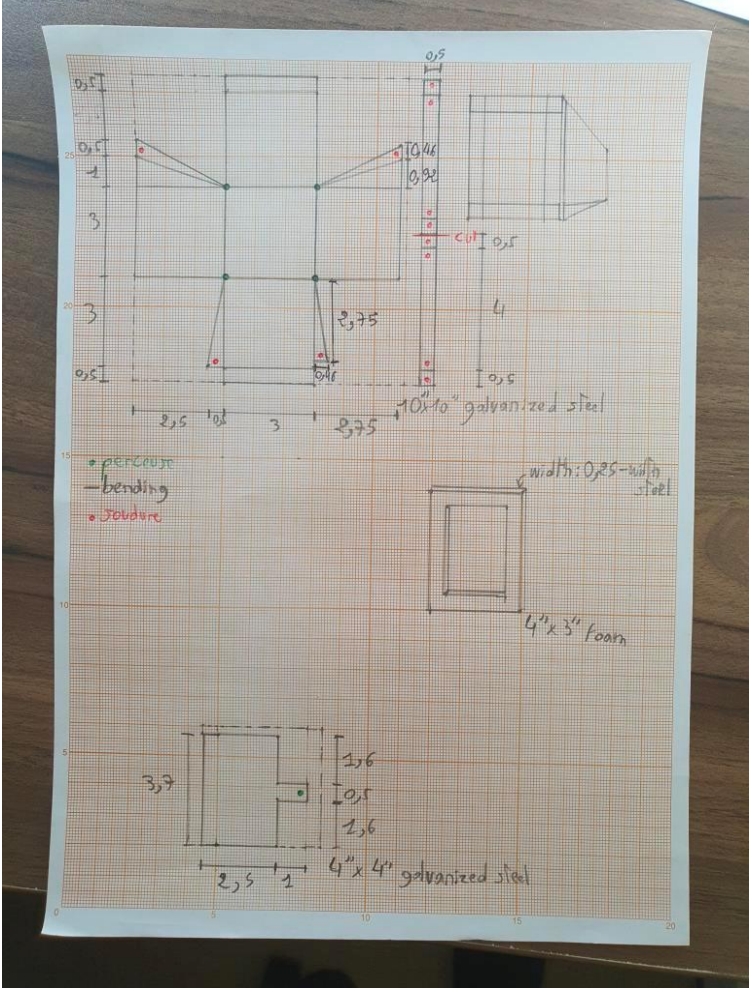 0,5
0,5
0,5
1
3
3
0,5
25
20
15
10
5
0
0,46
0,92
cut
0,5
4
0,5
2,75
0,46
2,5
0,5
3
2,75
10"x10" galvanized steel
• perceuse
— bending
• soudure
width: 0,25-width
steel
4"x 3" foam
3,7
1,6
0,5
1,6
2,5
1
4"x 4" galvanized steel
5
10
15
20